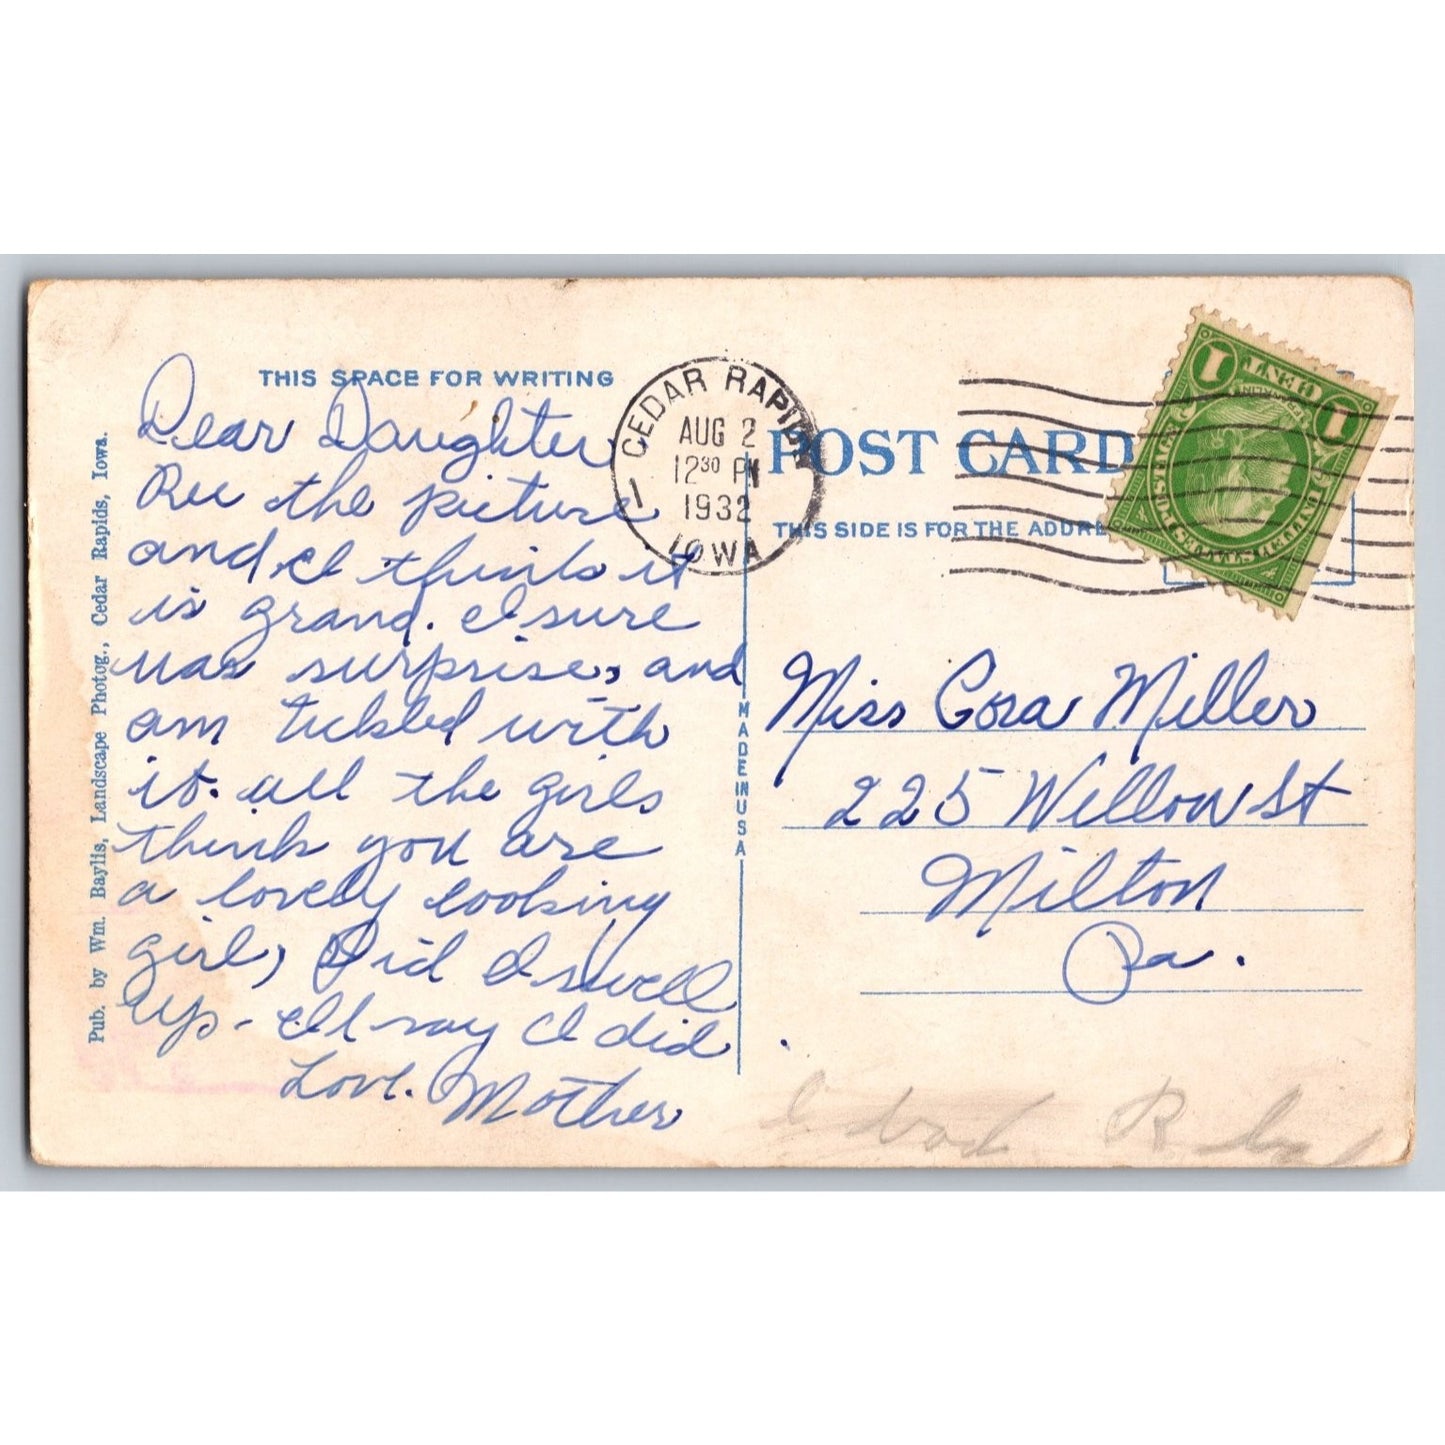 THIS SPACE FOR WRITING
Dear Daughter
Rec the picture
and I think it
is grand. I sure
was surprise, and
am tickled with
it. all the girls
think you are
a lovely looking
girl, Did I swell
up - I'll say I did
Love. Mother
Pub. by Wm. Baylis, Landscape Photog., Cedar Rapids, Iowa.
CEDAR RAPIDS
AUG 2
12 30 PM
1932
IOWA
1
POST CARD
THIS SIDE IS FOR THE ADDRE
MADE IN USA
1 CENT 1
FRANKLIN
UNITED STATES POSTAGE
Miss Cora Miller
225 Willow St
Milton
Pa.